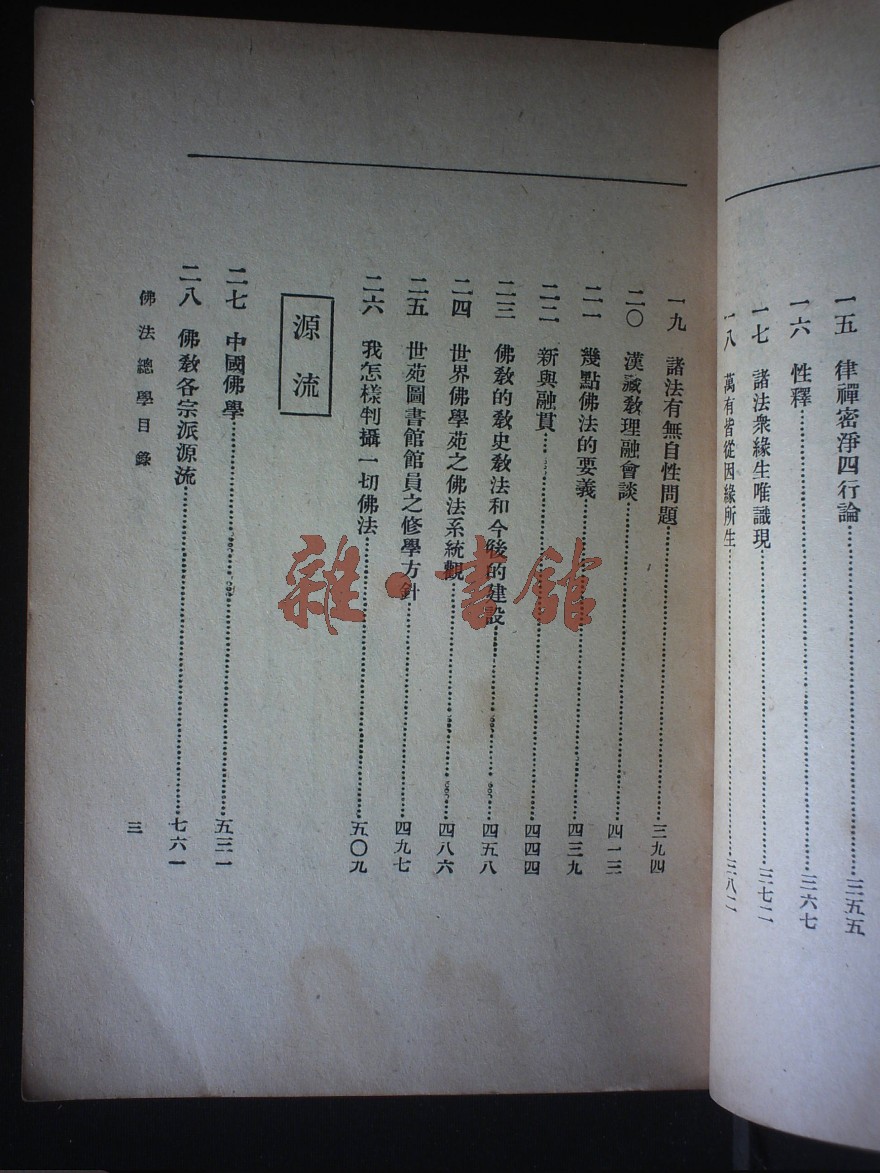 一五　律禪密淨四行論……三五五
一六　性釋……三六七
一七　諸法衆緣生唯識現……三七二
一八　萬有皆從因緣所生……三八二
一九　諸法有無自性問題……三九四
二〇　漢藏敎理融會談……四一三
二一　幾點佛法的要義……四三九
二二　新與融貫……四四四
二三　佛敎的敎史敎法和今後的建設……四五八
二四　世界佛學苑之佛法系統觀……四八六
二五　世苑圖書館館員之修學方針……四九七
二六　我怎樣判攝一切佛法……五〇九
源流
二七　中國佛學……五三一
二八　佛敎各宗派源流……七六一
佛法總學目錄　三
雜·書館